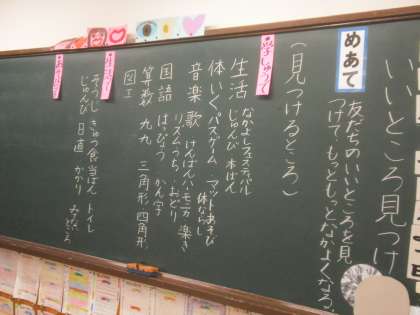 いいところ見つけ
めあて
友だちのいいところを見
つけて もっともっとなかよくなろう
（見つけるところ）
学しゅうで
生活 なかよしフェスティバル
じゅんび 本ばん
体いく パスゲーム マットあそび
体ならし
音楽 歌 けんばんハーモニカ 楽き
リズムうち おどり
国語 はっぴょう かん字
算数 九九 三角形 四角形
図工
生活で
そうじ きゅう食当ばん トイレ
じゅんび 日直 かかり